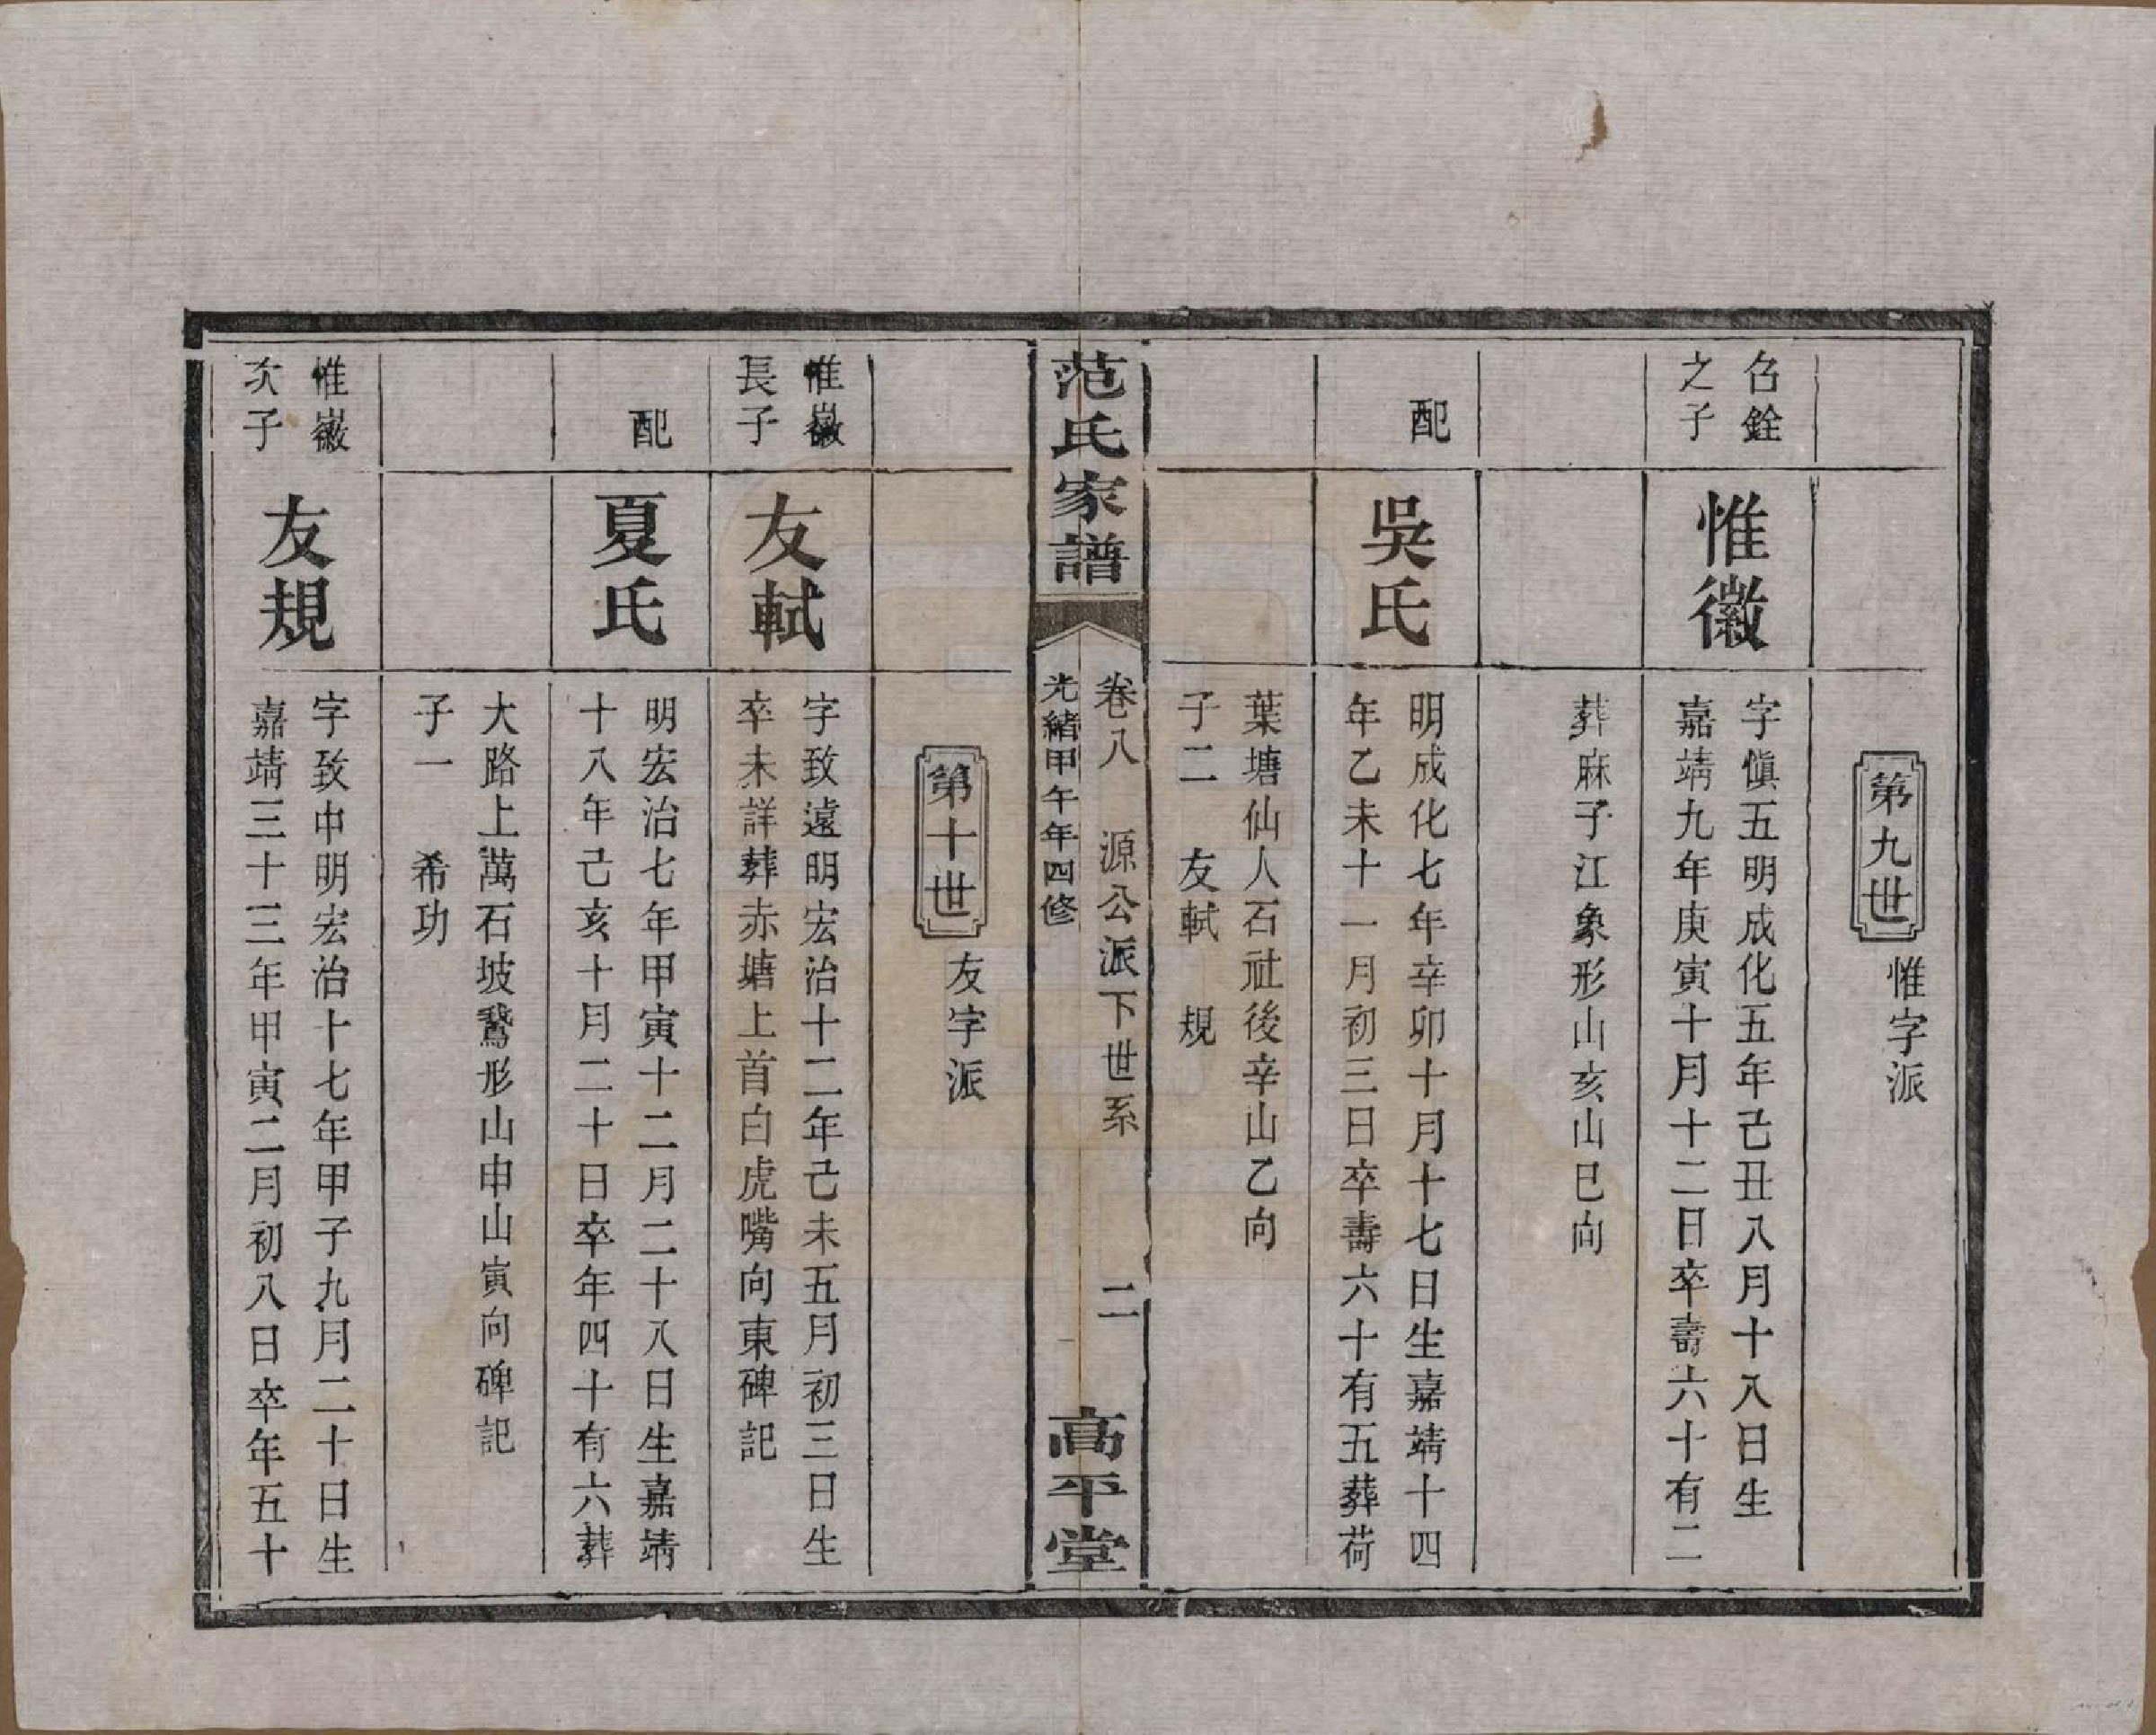 第九世
惟字派
名銓
之子
惟徽
字愼五明成化五年己丑八月十八日生
嘉靖九年庚寅十月十二日卒壽六十有二
葬麻子江象形山亥山巳向
配
吳氏
明成化七年辛卯十月十七日生嘉靖十四
年乙未十一月初三日卒壽六十有五葬荷
葉塘仙人石社後辛山乙向
子二　友軾　規
范氏家譜
卷八　源公派下世系　二
光緒甲午年四修
高平堂
第十世
友字派
惟徽
長子
友軾
字致遠明宏治十二年己未五月初三日生
卒未詳葬赤塘上首白虎嘴向東碑記
配
夏氏
明宏治七年甲寅十二月二十八日生嘉靖
十八年己亥十月二十日卒年四十有六葬
大路上萬石坡鵞形山申山寅向碑記
子一　希功
惟徽
次子
友規
字致中明宏治十七年甲子九月二十日生
嘉靖三十三年甲寅二月初八日卒年五十